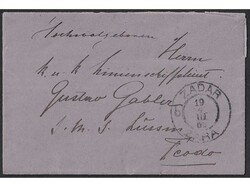 Hochwolgeboren
Herrn
k. u. k. Linienschiffslieut
Gustav Gabler
S. M. S. Lussin
Teodo
ZADAR
19
III
ZARA